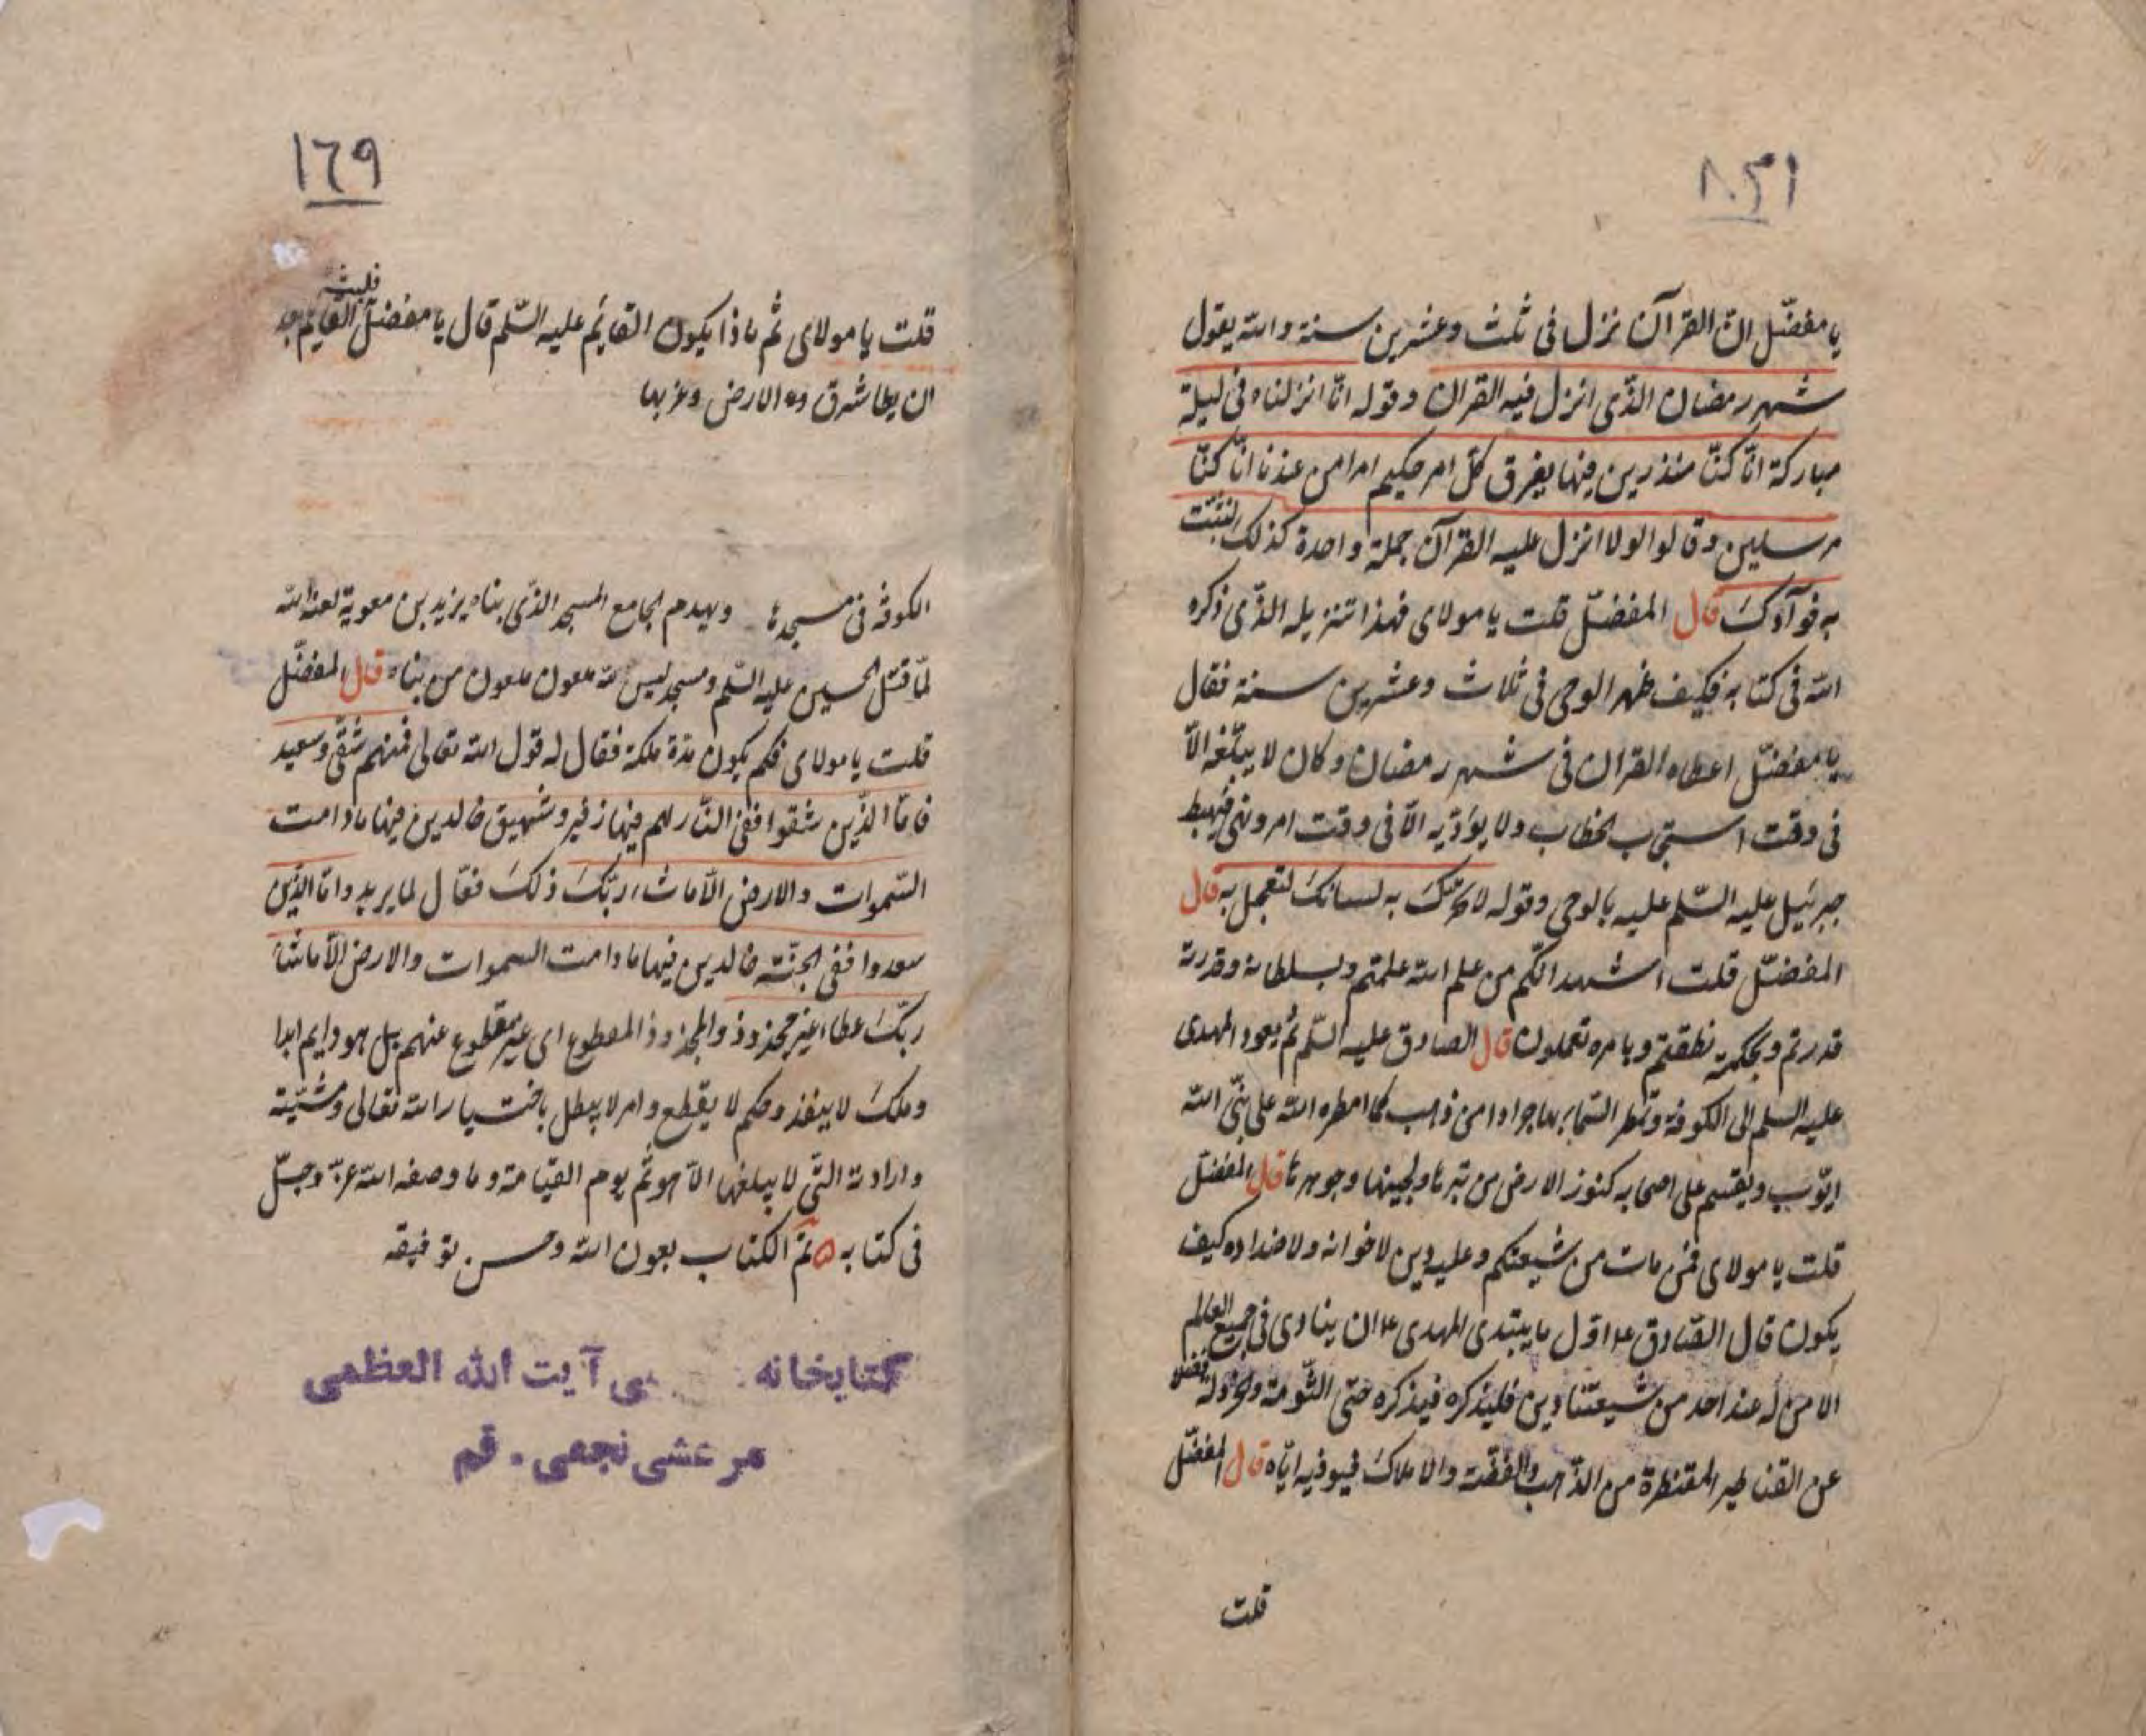 يا مفضّل انّ القرآن نزل فى ثلث وعشرين سنة والله يقول
شهر رمضان الذّى انزل فيه القران وقوله انّا انزلناه فى ليلة
مباركة انّا كنّا منذرين فيها يفرق كلّ امر حكيم امرا من عندنا انّا كنّا
مرسلين وقالوا لولا انزل عليه القرآن جملة واحدة كذلك لنثبّت
به فوآدك قال المفضّل قلت يا مولاى فهذا تنزيله الذّى ذكره
الله فى كتابه فكيف ظهر الوحى فى ثلاث وعشرين سنة فقال
يا مفضّل اعطاه القران فى شهر رمضان وكان لا يبلّغه الاّ
فى وقت استجاب الخطاب ولا يؤدّيه الاّ فى وقت امر ونهى فهبط
جبرئيل عليه السّلم عليه بالوحى وقوله لا تحرّك به لسانك لتعجل به قال
المفضّل قلت اشهد انّكم من علم الله علمتم وبسلطانه وقدرته
قدرتم وبحكمته نطقتم وبامره تعملون قال الصادق عليه السّلم ثم يعود المهدى
عليه السلم الى الكوفة وتمطر السّماء بها جرادا من ذهب كما امطره الله على بنىّ الله
ايّوب ويقسم على اصحابه كنوز الارض من تبرها ولجينها وجوهرها قال المفضّل
قلت يا مولاى فمن مات من شيعتكم وعليه دين لاخوانه ولاضداده كيف
يكون قال الصّادق ع اوّل ما يبتدى المهدى ع ان ينادى فى جميع العالم
الا من له عند احد من شيعتنا دين فليذكره فيذكره حتى الثّومة والخردلة فضلا
عن القناطير المقنطرة من الذّهب والفضّة والاملاك فيوفيه ايّاه قال المفضّل
قلت
١٦٩
قلت يا مولاى ثم ماذا يكون القائم عليه السّلم قال يا مفضّل القايم بعد
ان يطا شرق الارض وغربها
الكوفه فى مسجدها ويهدم الجامع المسجد الذّى بناه يزيد بن معوية لعنه الله
لمّا قتل الحسين عليه السّلم ومسجد ليس لله ملعون ملعون من بناه قال المفضّل
قلت يا مولاى فكم يكون مدّة ملكه فقال له قول الله تعالى فمنهم شقىّ وسعيد
فامّا الذّين شقوا ففى النّار لهم فيها زفير وشهيق خالدين فيها ما دامت
السّموات والارض الاّ ما شاء ربّك ذلك فعّال لما يريد وامّا الذّين
سعدوا ففى الجنّة خالدين فيها ما دامت السموات والارض الاّ ما شاء
ربّك عطاء غير مجذوذ والمجذوذ المقطوع اى غير مقطوع عنهم بل هو دايم ابدا
وملك لا ينفذ وحكم لا يقطع وامر لا يبطل باختيار الله تعالى ومشيّته
وارادته التّى لا يبلغها الاّ هو ثم يوم القيامة وما وصفه الله عزّ وجلّ
فى كتابه ه تمّ الكتاب بعون الله وحسن توفيقه
كتابخانه آيت الله العظمى
مرعشى نجفى . قم